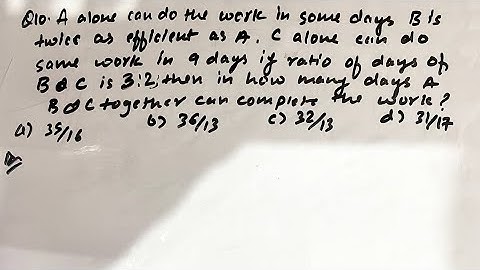 Q10. A alone can do the work in some days B is
twice as efficient as A. C alone can do
same work in 9 days if ratio of days of
B & C is 3:2, then in how many days A
B & C together can complete the work?
a) 35/16 b) 36/13 c) 32/13 d) 31/17